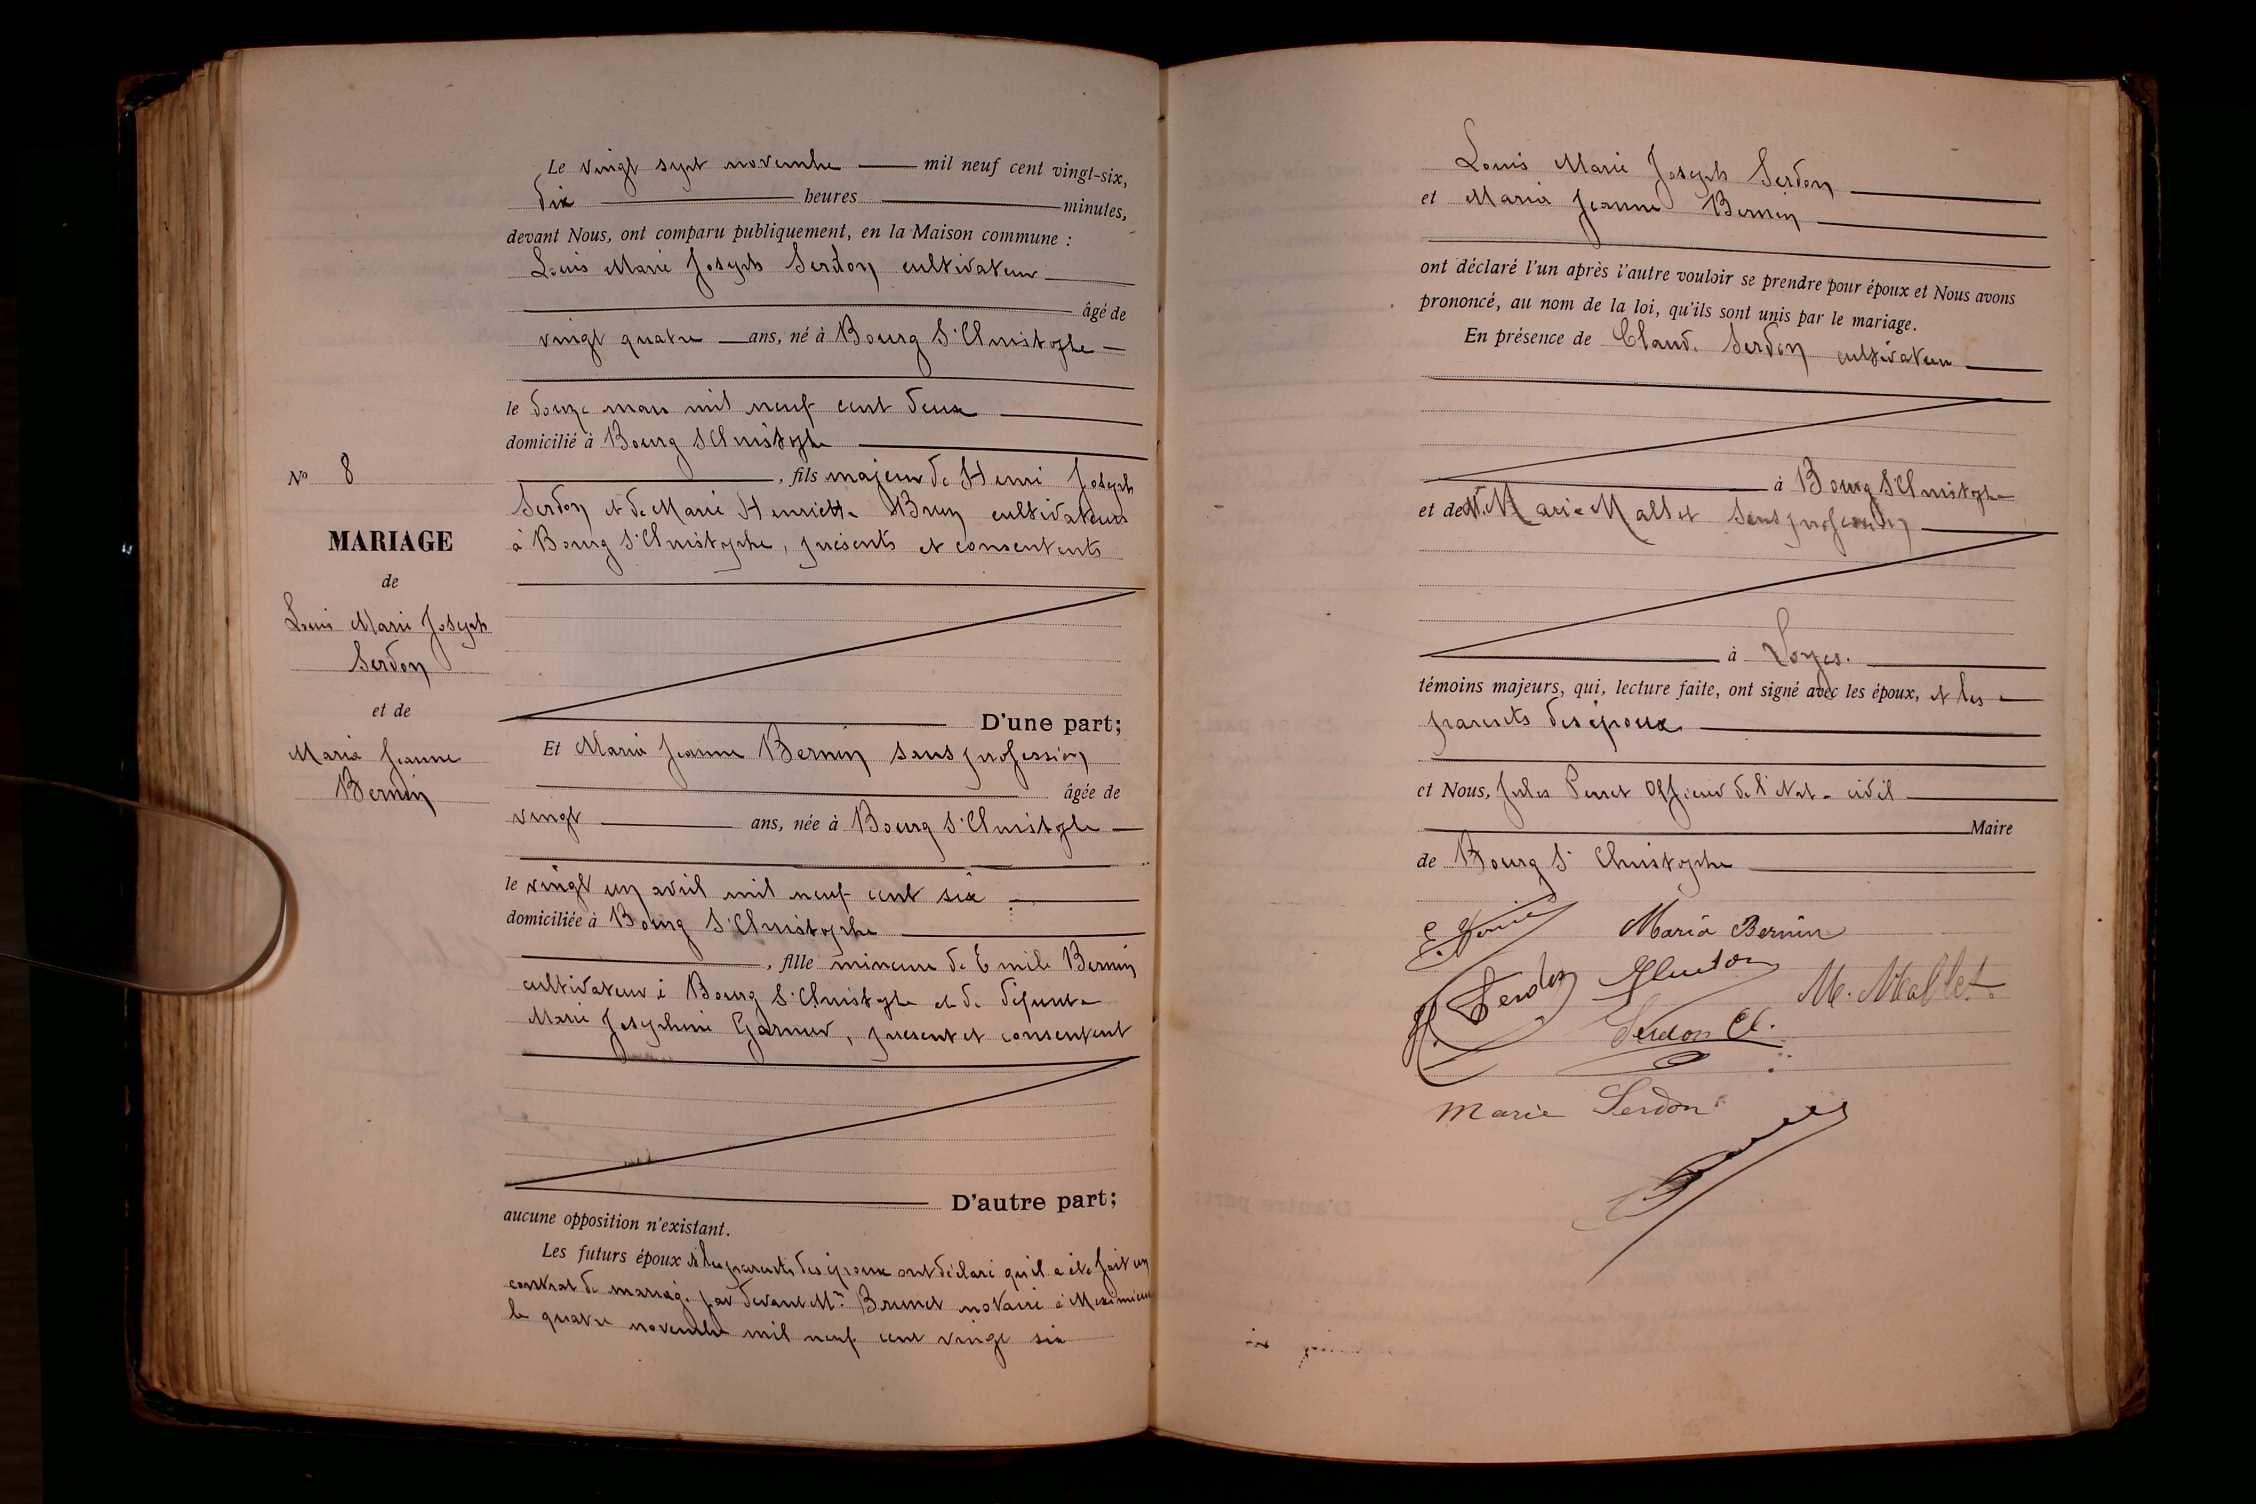 Le vingt sept novembre mil neuf cent vingt-six,
dix heures minutes,
devant Nous, ont comparu publiquement, en la Maison commune :
Louis Marie Joseph Serdon cultivateur
âgé de
vingt quatre ans, né à Bourg St Christophe
le douze mars mil neuf cent deux
domicilié à Bourg St Christophe
, fils majeur de Henri Joseph
Serdon et de Marie Henriette Brun cultivateurs
à Bourg St Christophe, présents et consentents
D'une part;
Et Maria Jeanne Bernin sans profession
âgée de
vingt ans, née à Bourg St Christophe
le vingt un avril mil neuf cent six
domiciliée à Bourg St Christophe
, fille mineure de Emile Bernin
cultivateur à Bourg St Christophe et de défunte
Marie Josephine Garnier, présent et consentent
D'autre part;
aucune opposition n'existant.
Les futurs époux et les parents des époux ont déclaré qu'il a été fait un
contrat de mariage par devant Me Brunet notaire à Meximieux
le quatre novembre mil neuf cent vingt six
No 8
MARIAGE
de
Louis Marie Joseph
Serdon
et de
Maria Jeanne
Bernin
Louis Marie Joseph Serdon
et Maria Jeanne Bernin
ont déclaré l'un après l'autre vouloir se prendre pour époux et Nous avons
prononcé, au nom de la loi, qu'ils sont unis par le mariage.
En présence de Claude Serdon cultivateur
à Bourg St Christophe
et de Marie Mallet sans profession
à Loyes.
témoins majeurs, qui, lecture faite, ont signé avec les époux, et les
parents des époux
et Nous, Jules Perret Officier de l'état civil
Maire
de Bourg St Christophe
Maria Bernin
Serdon
M. Mallet
Serdon Cl.
Marie Serdon